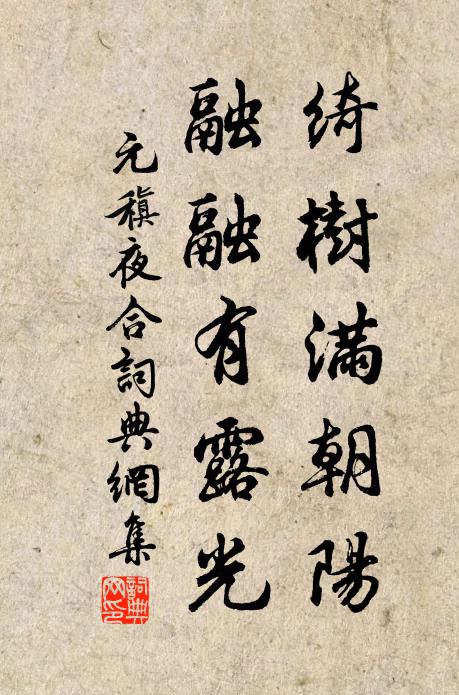 綺樹滿朝陽
融融有露光
元稹夜合詞典網集
詞典
网印